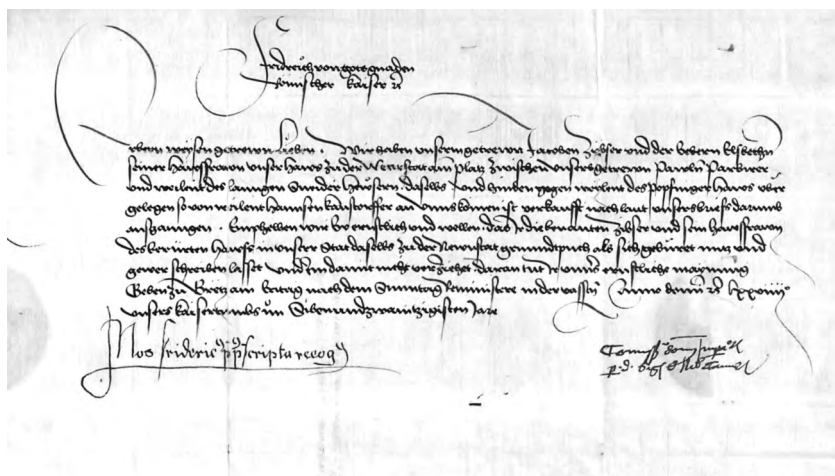 Friderich von gottes gnaden
Römischer kaiser etc
Erbern weysen getrewen lieben. Wir haben unserm getrewen Jacoben Zibser und der Erbern Elsbethn
seiner Hausfrawen unser Haws zu der Newnstat am Platz zwischen unsers getrewen
und weilend des Hannsen Hewsern daselbs und hinden gegen weilend des Poppfinger Haws uber
gelegen so von weilend Hannsen kamrer an uns komen ist verkaufft nach laut unsers briefs darumb
ausgangen. Emphelhen wir ew ernstlich und wellen daz Ir die benanten Zibser und sein hausfrawen
des berurten Hawss in unser Stat daselbs zu der Newnstat grundtpuch als sich geburet nuz und
gewer schreiben lasset und Ew damit nicht verziehet daran tut Ir unns ernstliche maynung
Geben zu am britag nach dem Sunntag Reminiscere in der vassten Anno domini etc LXXVIIII
unsers kaisertumbs im Sibenundzwaintzigisten Jare
Nos fridericus prescripta recog
Commissio domini Imperatoris